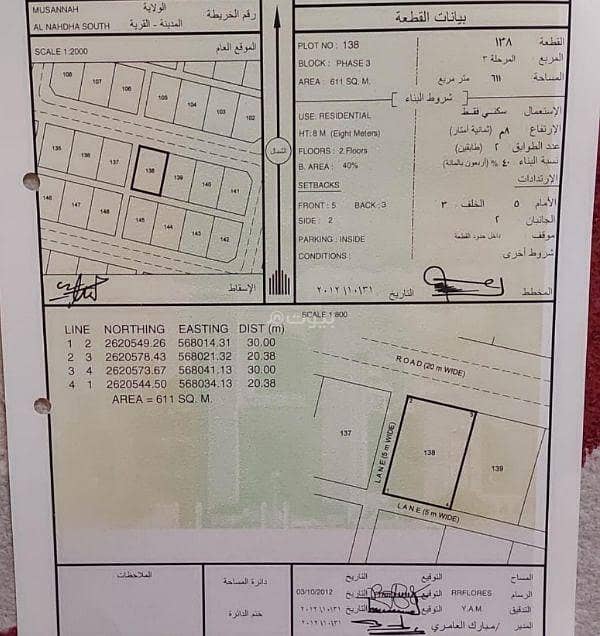 MUSANNAH الولاية
AL NAHDHA SOUTH المدينة - القرية
رقم الخريطة
SCALE 1:2000 الموقع العام
106
107
106
105
104
103
102
135
136
137
138
139
140
141
146
147
148
145
144
143
142
الشمال
الإسقاط
بيانات القطعة
PLOT NO : 138 القطعة ١٣٨
BLOCK : PHASE 3 المربع المرحلة ٣
AREA : 611 SQ. M. المساحة ٦١١ متر مربع
شروط البناء
USE: RESIDENTIAL الإستعمال سكني فقط
HT: 8 M. (Eight Meters) الإرتفاع ٨م (ثمانية أمتار)
FLOORS : 2 Floors عدد الطوابق ٢ (طابقين)
B. AREA : 40% نسبة البناء ٤٠ % (أربعون بالمائة)
SETBACKS الإرتدادات
FRONT : 5 BACK : 3 الأمام ٥ الخلف ٣
SIDE : 2 الجانبان ٢
PARKING : INSIDE موقف داخل حدود القطعة
CONDITIONS : شروط أخرى
المخطط التاريخ ٢٠١٢/١٠/٣١
SCALE 1:800
بيوت
LINE NORTHING EASTING DIST (m)
1 2 2620549.26 568014.31 30.00
2 3 2620578.43 568021.32 20.38
3 4 2620573.67 568041.13 30.00
4 1 2620544.50 568034.13 20.38
AREA = 611 SQ. M.
ROAD (20 m WIDE)
LANE (5 m WIDE)
137
138
139
LANE (5 m WIDE)
الملاحظات
دائرة المساحة
ختم الدائرة
المساح التوقيع التاريخ
الرسام RRFLORES التوقيع 03/10/2012
التدقيق Y.A.M. التوقيع التاريخ ٢٠١٢/١٠/٣١
المدير /مبارك العامري التوقيع التاريخ ٢٠١٢/١٠/٣١